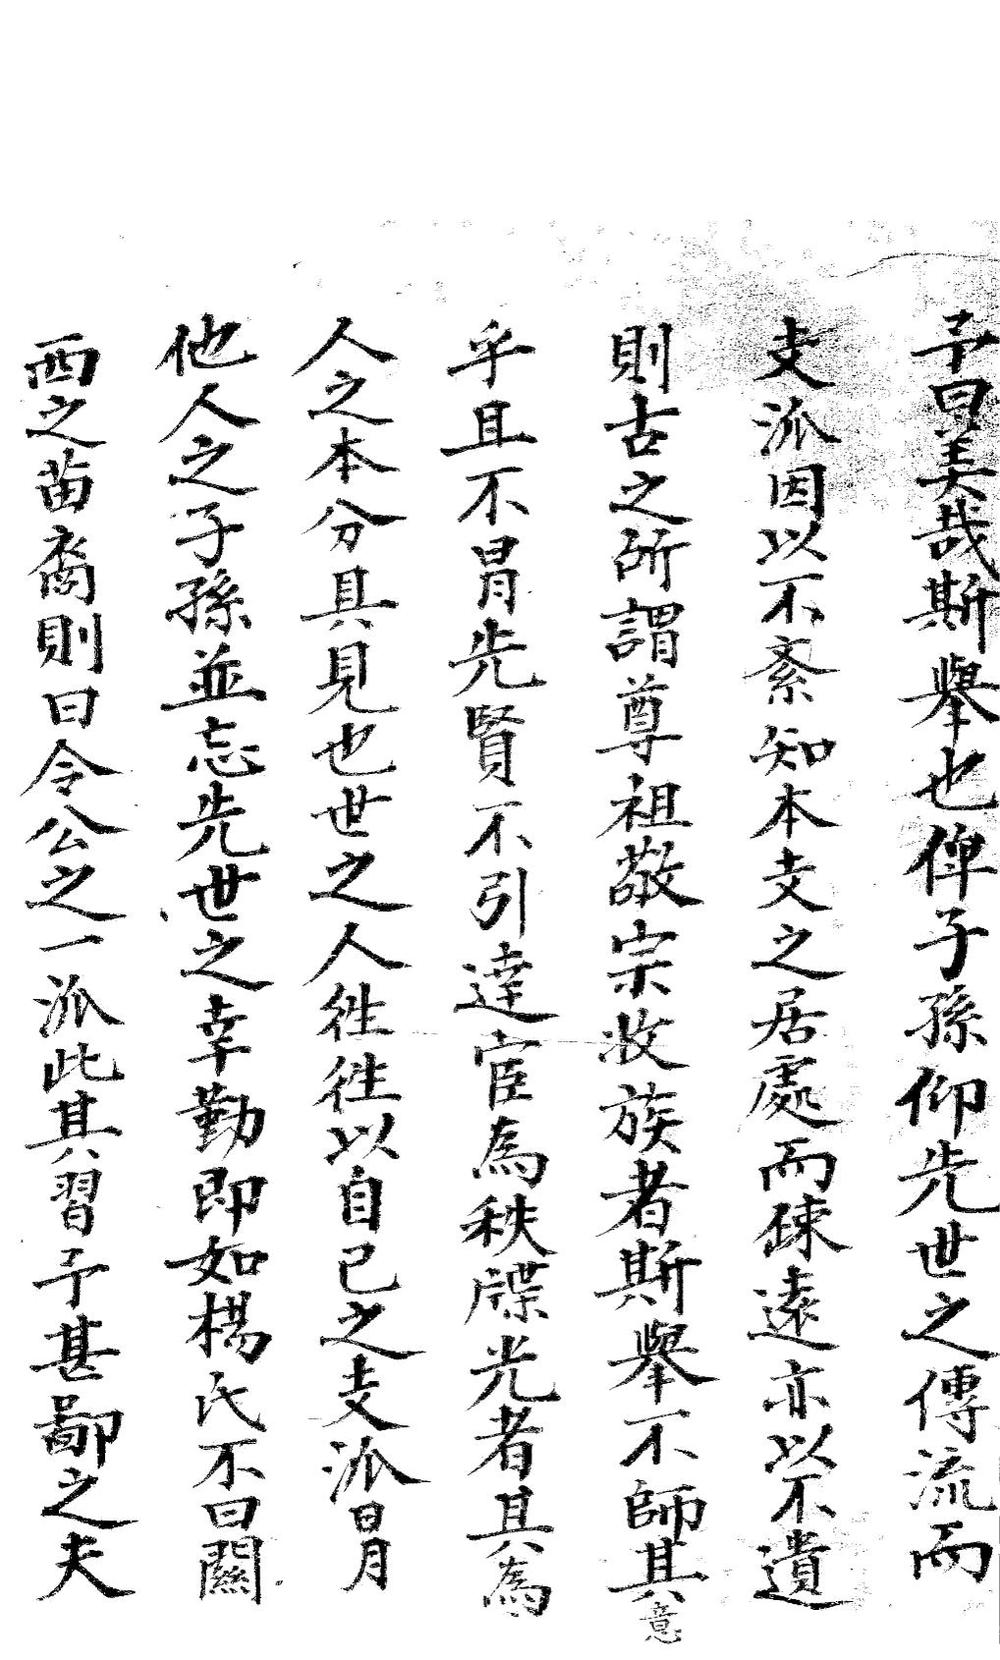 予曰美哉斯舉也俾子孫仰先世之傳流而
支派因以不紊知本支之居處而疎遠亦以不遺
則古之所謂尊祖敬宗收族者斯舉不師其意
乎且不冐先賢不引達宦為秩牒光者其為
人之本分具見也世之人徃徃以自己之支派冐
他人之子孫並忘先世之幸勤即如楊氏不曰關
西之苗裔則曰令公之一派此其習予甚鄙之夫